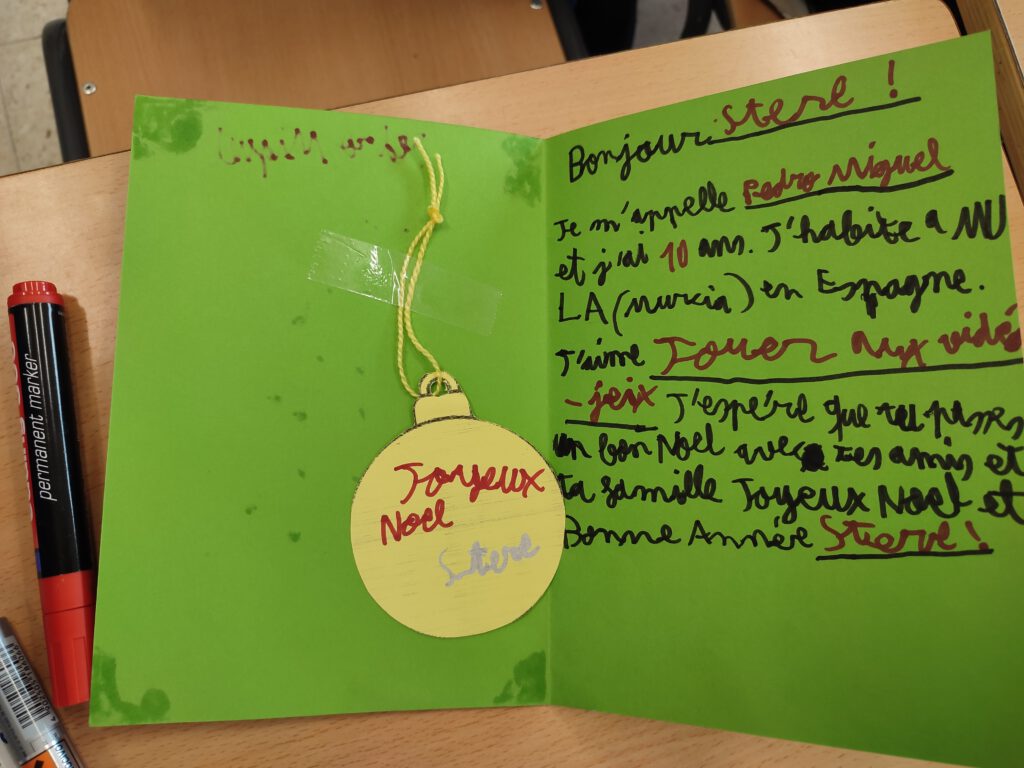 permanent marker
Joyeux
Noel
Stere
Bonjour Stere !
Je m'appelle Pedro Miguel
et j'ai 10 ans. J'habite a MU
LA (Murcia) en Espagne.
J'aime Jouer Aux vidé
-jeix J'espére que tu passes
un bon Noel avec tes amis et
ta famille Joyeux Noel et
Bonne Année